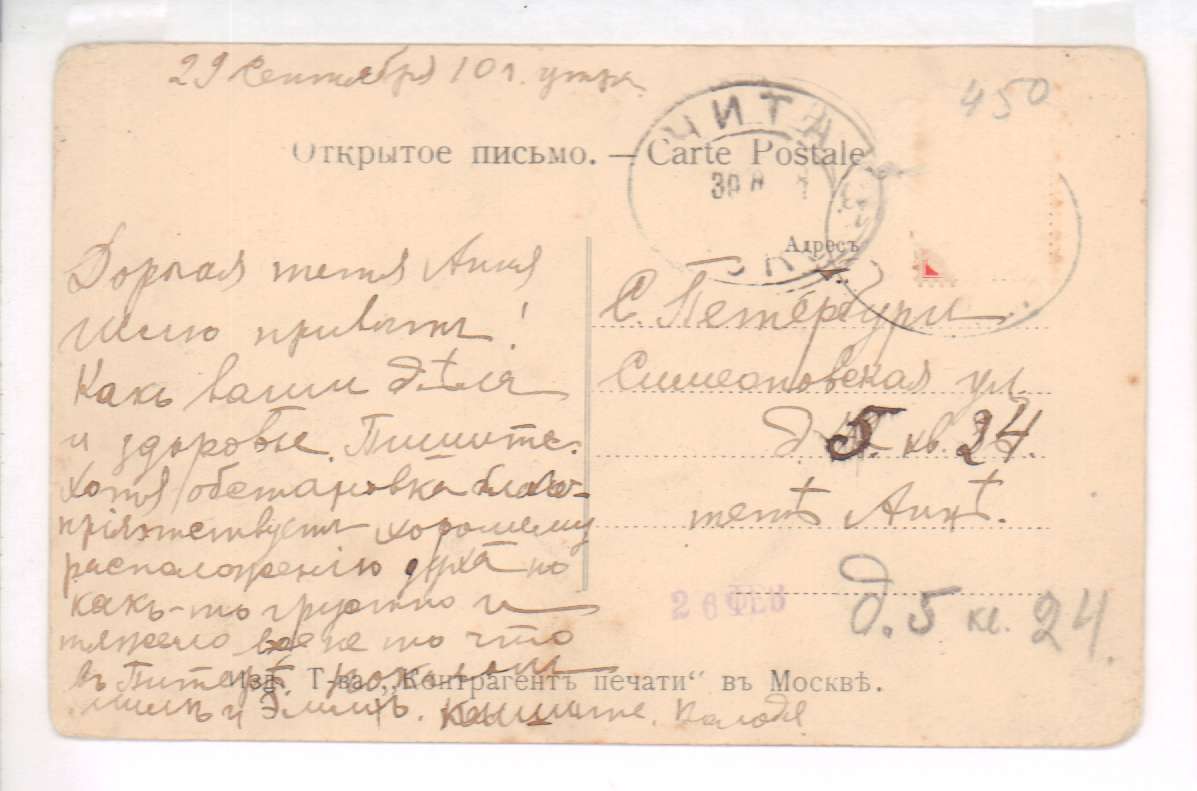 29 Сентября 10 ч. утра.
450
ЧИТА
Открытое письмо. — Carte Postale
30
Адресъ
Дорогая тетя Аня
Шлю приветъ!
Какъ ваши дѣла
и здоровье. Пишите.
Хотя обстановка благо-
пріятствуетъ хорошему
расположенію духа но
какъ-то грустно и
тяжело не то что
въ Питерѣ.
и Эмилію. Пишите. Володя
С. Петербургъ
Симеоновская ул.
д. 5. кв. 24.
тетѣ Анѣ.
26 ФЕВ
д. 5 кв. 24.
Изд. Т-ва „Контрагентъ печати“ въ Москвѣ.